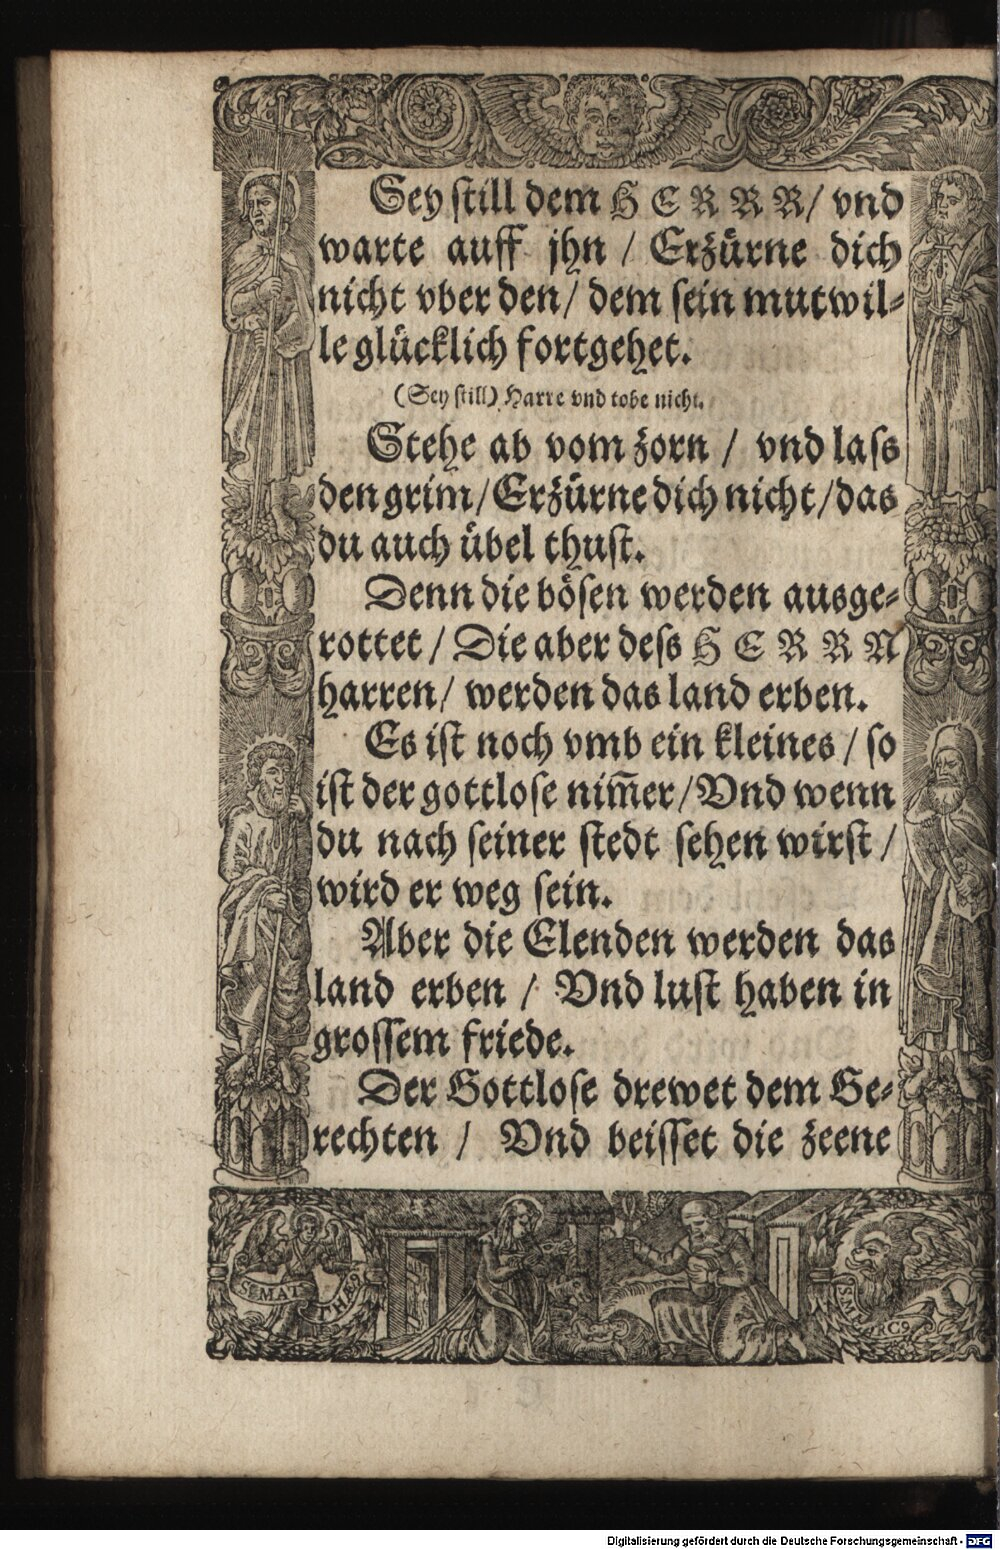 Sey still dem HERRR/ vnd
warte auff jhn / Erzürne dich
nicht vber den/ dem sein mutwil-
le glücklich fortgehet.
(Sey still) Harre vnd tobe nicht.
Stehe ab vom zorn / vnd lass
den grim/ Erzürne dich nicht/ das
du auch übel thust.
Denn die bösen werden ausge-
rottet/ Die aber dess HERRN
harren/ werden das land erben.
Es ist noch vmb ein kleines / so
ist der gottlose nim̃er/ Vnd wenn
du nach seiner stedt sehen wirst /
wird er weg sein.
Aber die Elenden werden das
land erben / Vnd lust haben in
grossem friede.
Der Gottlose drewet dem Ge-
rechten / Vnd beisset die zeene
S. MATTHÆ9
S. MARC9
Digitalisierung gefördert durch die Deutsche Forschungsgemeinschaft - DFG